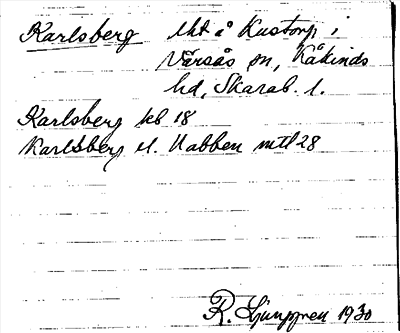 Karlsberg lht å Kustorp i
Värsås sn, Kåkinds
hd, Skarab. l.
Karlsberg kb 18
Karlsberg el. Nabben mtl 28
R. Ljunggren 1930